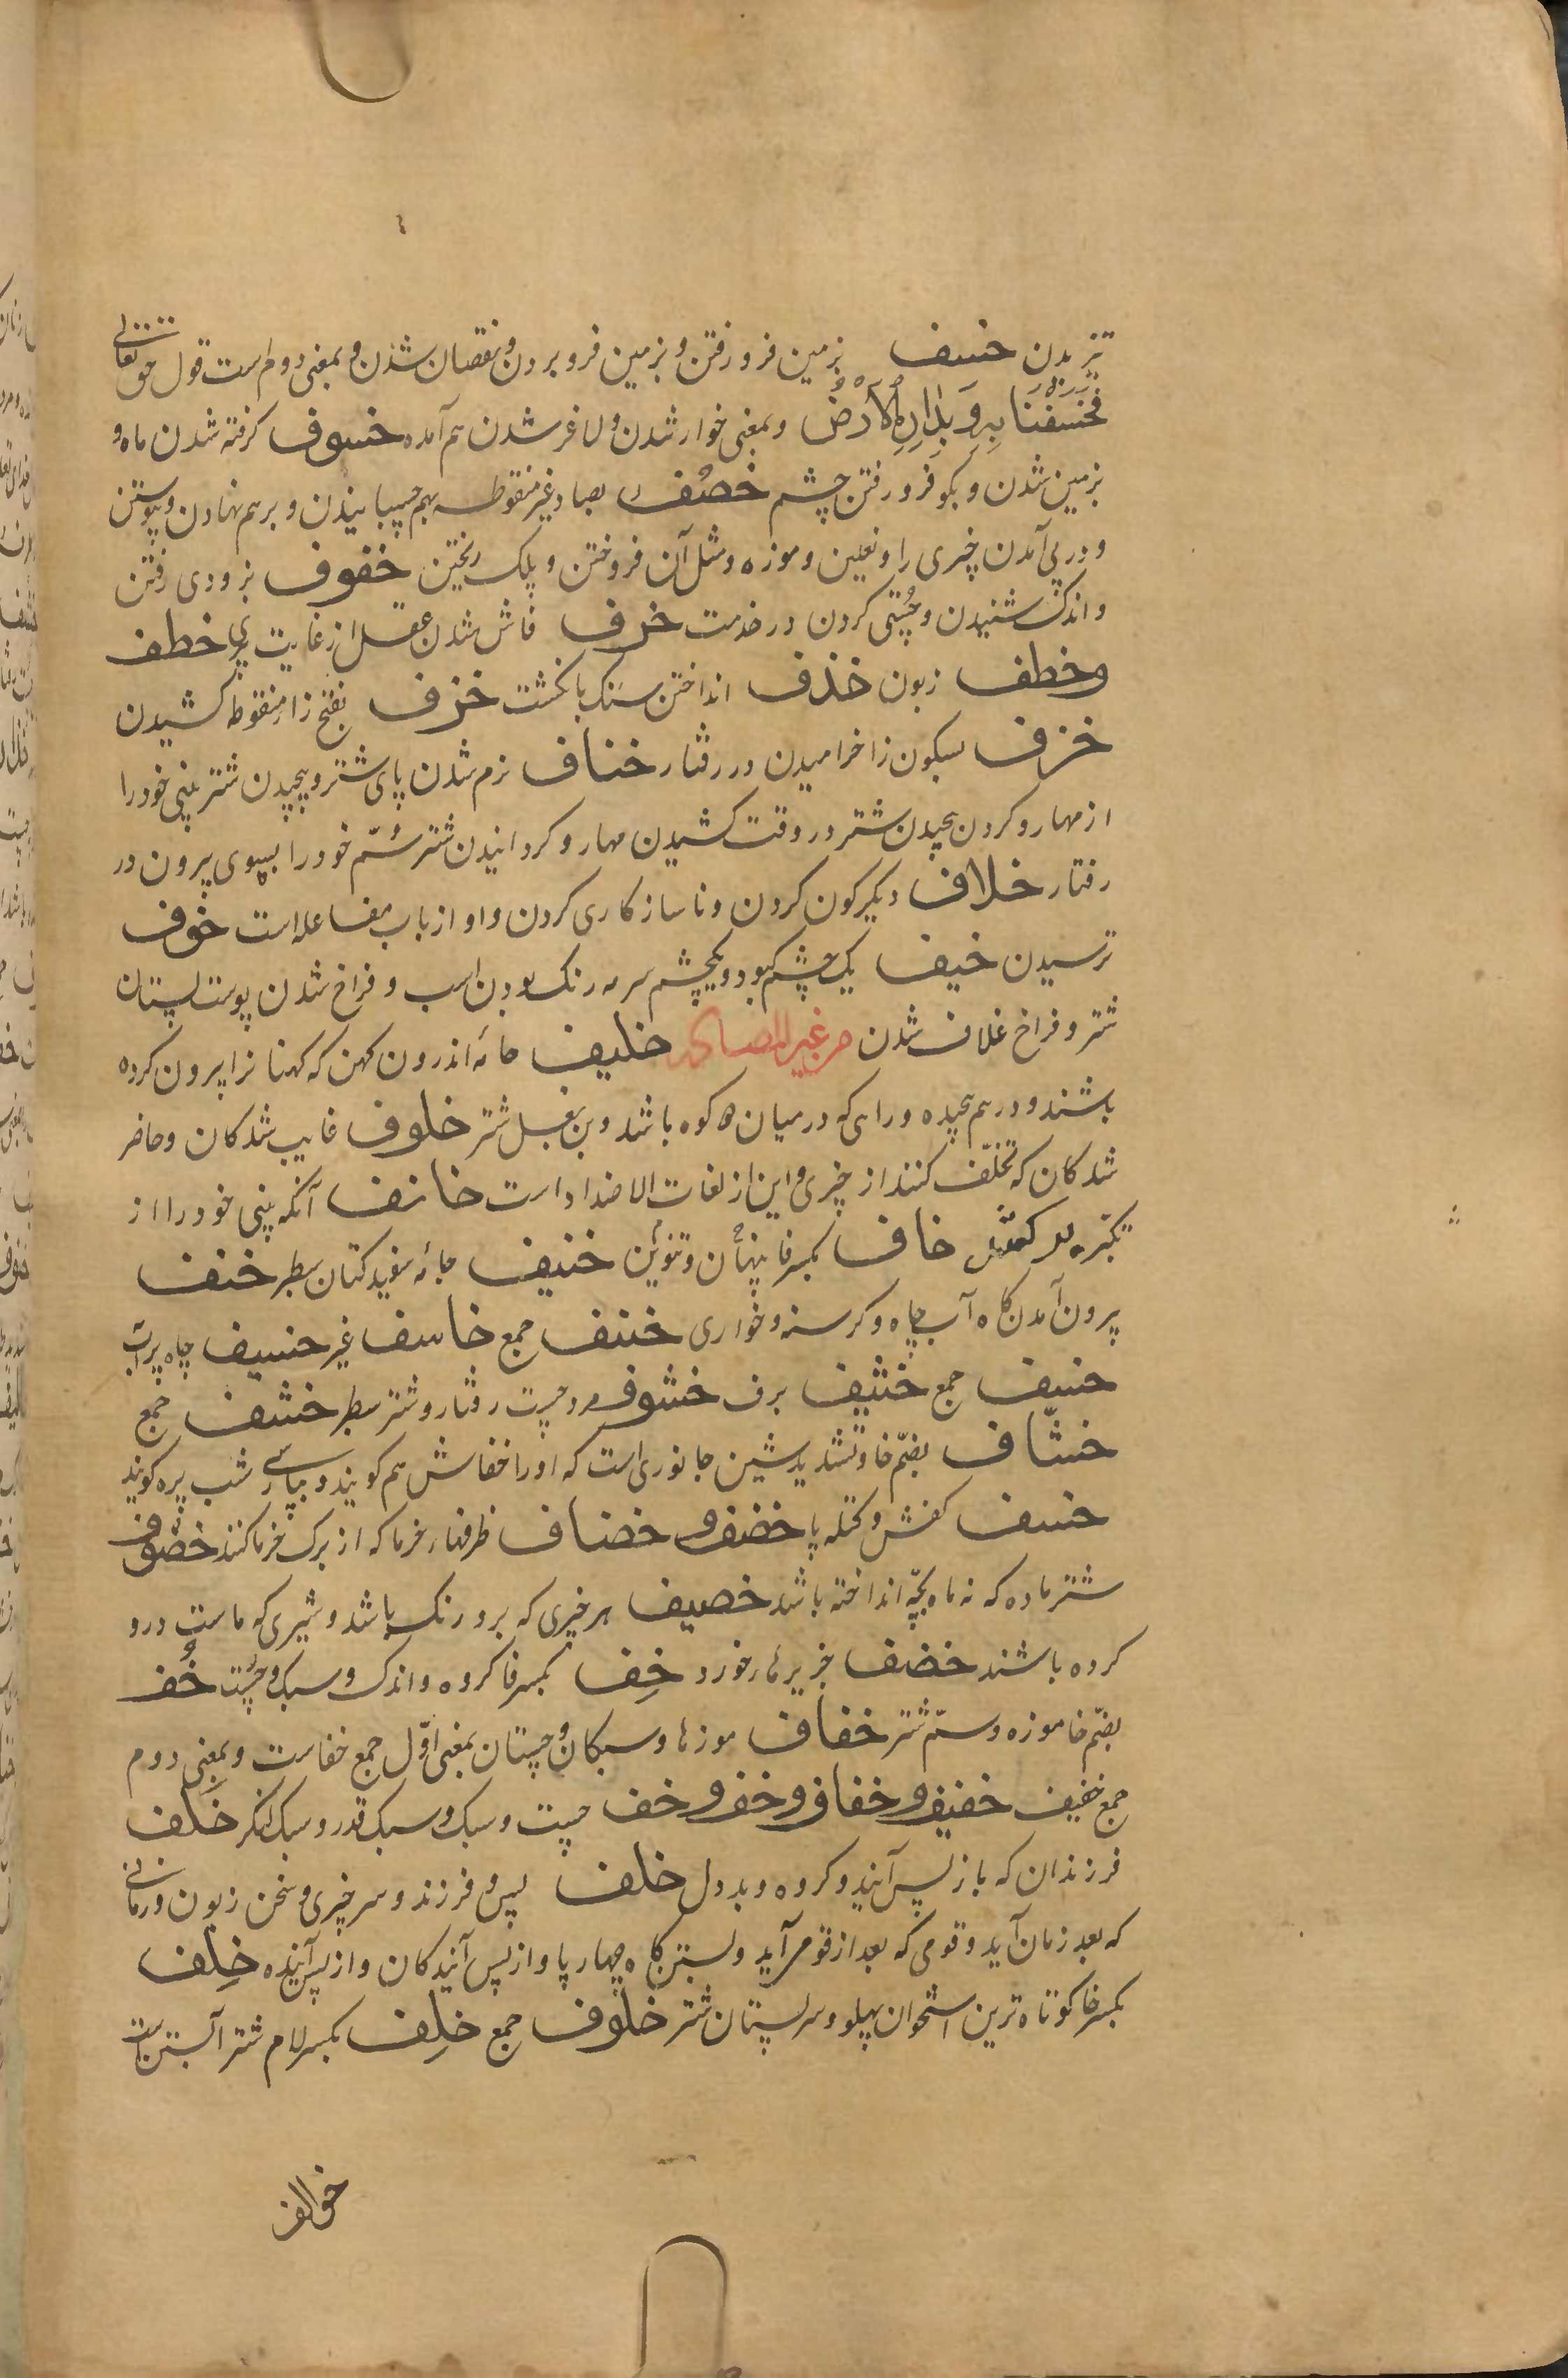 تیز یدن خسف بزمین فرو رفتن و بزمین فرو بردن و نقصان شدن و بمعنی دوم است قول حق تعالی
فَخَسَفْنَا بِهِ وَ بِدَارِهِ الْأَرْضَ و بمعنی خوار شدن و لاغر شدن هم آمده خسوف کرفته شدن ماه و
بزمین شدن و بکو فرو رفتن چشم خصف بصاد غیر منقوطه بهم چسپانیدن و بر هم نهادن و پیوستن
و در پی آمدن چیزی را و نعلین و موزه و مثل آن فروختن و پلک ریختن خفوف بزودی رفتن
و اندک شنیدن و چُستی کردن در خدمت خرف فاش شدن عقل از غایت پیری خطف
وخطف زبون خذف انداختن سنک بانکشت خزف بفتح زا منقوطه کشیدن
خزف بسکون زا خرامیدن در رفتار خناف نرم شدن پای شتر و پیچیدن شتر بینی خود را
از مهار و کردن پیچیدن شتر در وقت کشیدن مهار و کردانیدن شتر سُمّ خود را بسوی بیرون در
رفتار خلاف دیکرکون کردن و ناسازکاری کردن و او از باب مفاعله است خوف
ترسیدن خیف یک چشم کبود و یکچشم سرمه رنک بودن اسب و فراخ شدن پوست پستان
شتر و فراخ غلاف شدن من غیر المصادر خلیف جامهٔ اندرون کهن که کهنا نرا بیرون کرده
باشند و در هم پیچیده و راهی که در میان دو کوه باشد و بن بغل شتر خلوف غایب شدکان و حاضر
شدکان که تخلّف کنند از چیزی و این از لغات الاضداد است خانف آنکه بینی خود را از
تکبّر بر کشد خاف بکسر فا پنهان و تنوین خنیف جامهٔ سفید کتان سطبر خنف
بیرون آمدن کاه آب چاه و کرسنه و خواری خسف جمع خاسف غیر خسیف چاه پر آب
خسف جمع خشیف برف خشوف مرد چست رفتار و شتر سطبر خشف جمع
خشّاف بضمّ خا و تشدید شین جانوری است که او را خفاش هم کویند و بپارسی شب پره کویند
خسف کفش و کتله پا خضف و خضاف ظرفها خرما که از برک خرما کنند خصوف
شتر ماده که نه ماه بچه انداخته باشد خصیف هر چیزی که برو رنک باشد و شیری که ماست درو
کرده باشند خضف خربزهٔ خورد خِف بکسر فا کروه و اندک و سبک و چُست خُف
بضمّ خا موزه و سمّ شتر خفاف موزها و سبکان و چستان بمعنی اوّل جمع خفاست و بمعنی دوم
جمع خفیف خفیف و خفاف و خف و خف چست و سبک و سبک قدر و سبک لنکر خَلف
فرزندان که باز پس آیند و کروه و بد دل خلف پس و فرزند و سر چیزی و سخن زبون و زمانی
که بعد زمان آید و قومی که بعد از قوم آید و بستن کاه چهار پا و از پس آیندکان و از پس آینده خِلف
بکسر خا کوتاه ترین استخوان پهلو و سر پستان شتر خلوف جمع خلِف بکسر لام شتر آبستن است
خوالف